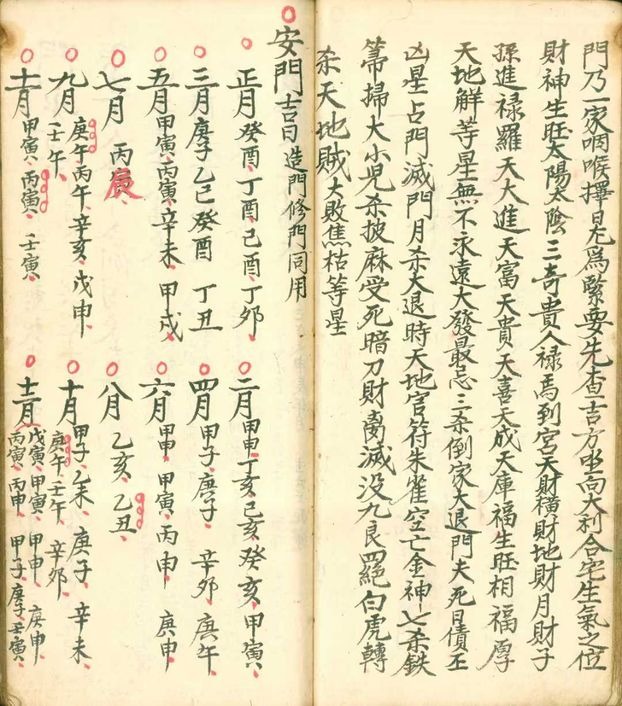 門乃一家咽喉擇日尤為緊要先查吉方坐向大利合宅生氣之位
財神生旺太陽太陰三奇貴人禄馬到宮天財橫財地財月財子
孫進禄羅天大進天富天貴天喜天成天庫福生旺相福厚
天地解等星無不永遠大發最忌三杀倒家大退門夫死日債丕
凶星占門滅門月杀大退時天地官符朱雀空亡金神七杀鉄
箒掃大小児杀披麻受死暗刀財离滅没九良四絕白虎轉
杀天地賊大敗焦枯等星
安門吉日造門修門同用
正月癸酉丁酉己酉丁卯
二月甲申丁亥己亥癸亥甲寅
三月庚子乙巳癸酉丁丑
四月甲子庚子辛卯庚午
五月甲寅丙寅辛未甲戌
六月甲申甲寅丙申庚申
七月丙寅
八月乙亥乙丑
九月庚午丙午辛亥戊申
壬午
十月甲子乙未庚子辛未
庚午壬午辛卯
十一月甲寅丙寅壬寅
十二月戊寅甲寅甲申庚申
丙寅丙申甲子庚子壬寅